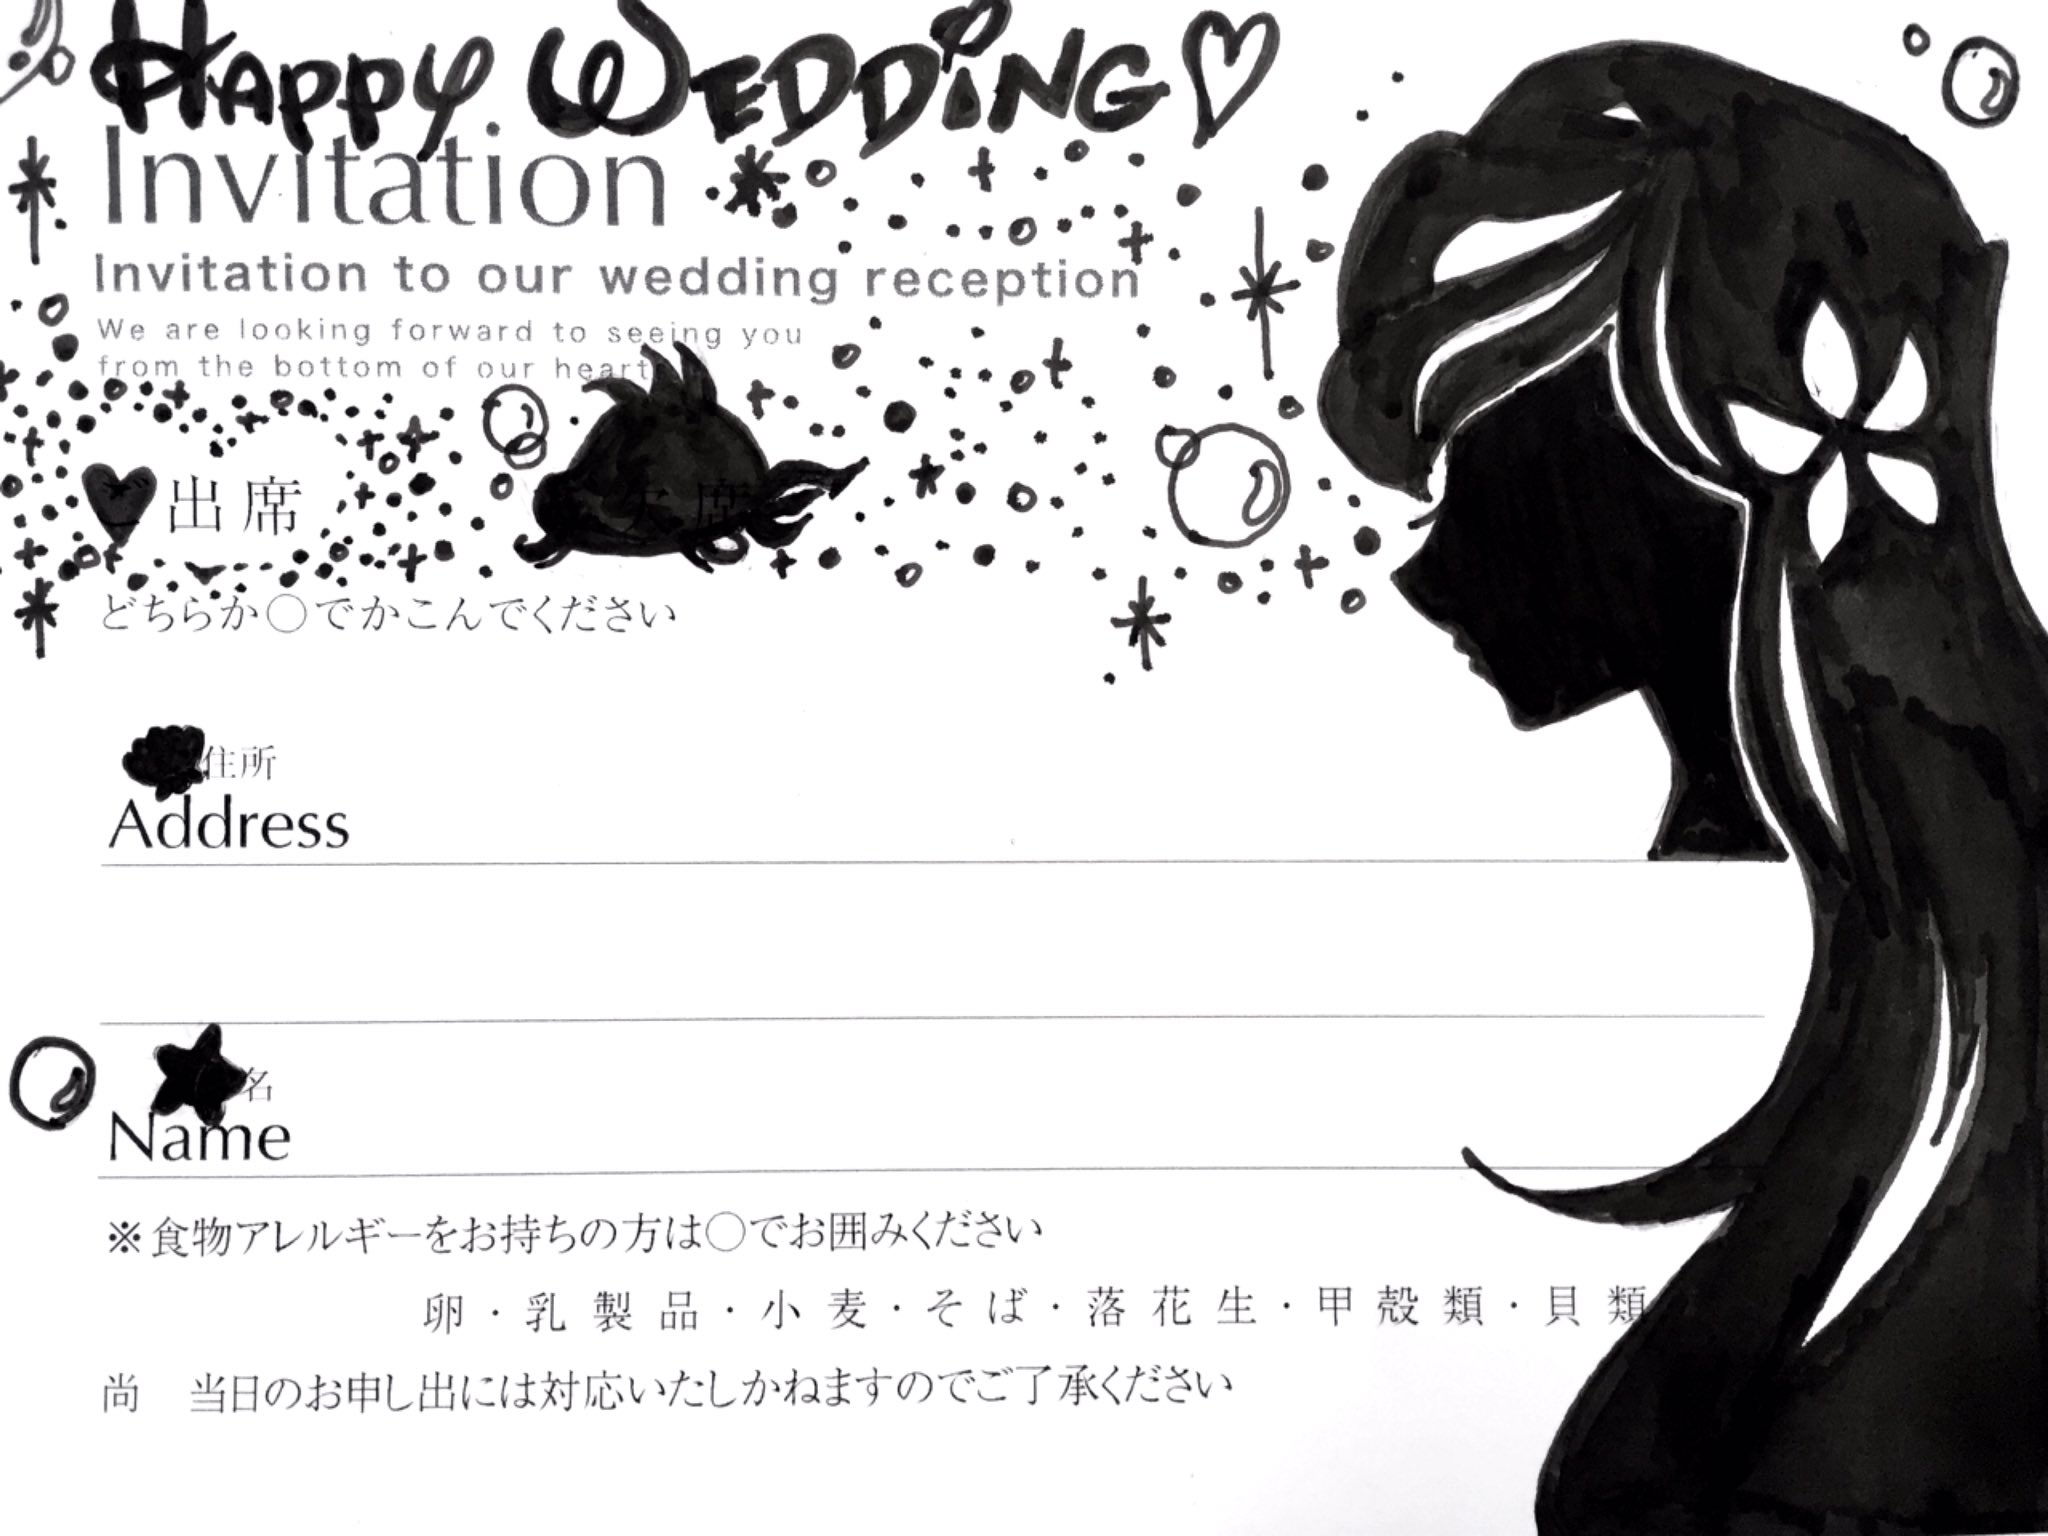 HAPPY WEDDiNG♡
Invitation
Invitation to our wedding reception
We are looking forward to seeing you
from the bottom of our heart
出席
欠席
どちらか○でかこんでください
住所
Address
名
Name
※食物アレルギーをお持ちの方は○でお囲みください
卵・乳製品・小麦・そば・落花生・甲殻類・貝類
尚　当日のお申し出には対応いたしかねますのでご了承ください